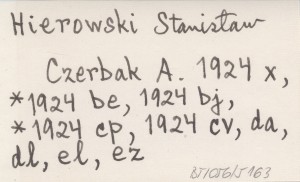 Hierowski Stanisław
Czerbak A. 1924 x,
*1924 be, 1924 bj,
*1924 cp, 1924 cv, da,
dl, el, ez